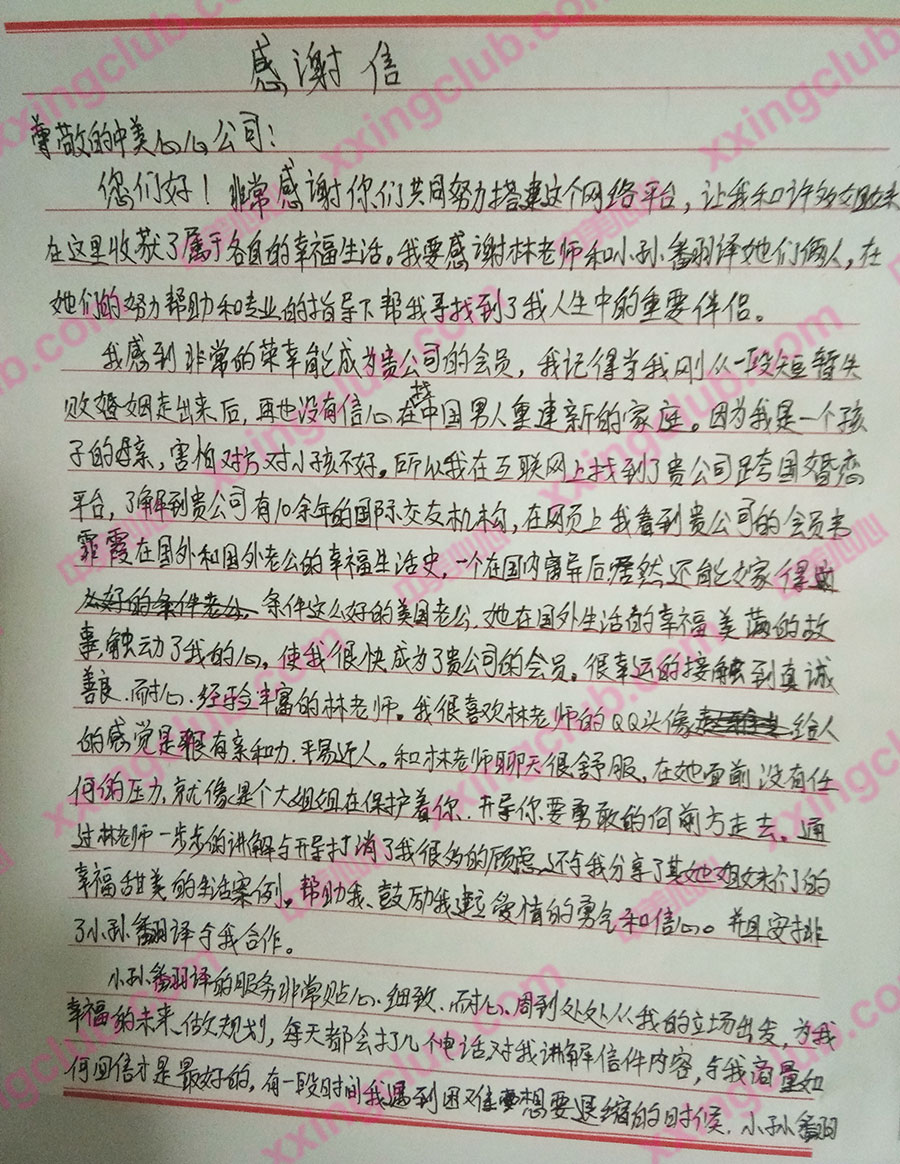 感谢信
尊敬的中美心心公司：
您们好！非常感谢你们共同努力搭建这个网络平台，让我和许多姐妹
在这里收获了属于各自的幸福生活。我要感谢林老师和小孙翻译她们俩人，在
她们的努力帮助和专业的指导下帮我寻找到了我人生中的重要伴侣。
我感到非常的荣幸能成为贵公司的会员，我记得当我刚从一段短暂失
败婚姻走出来后，再也没有信心在找中国男人重建新的家庭。因为我是一个孩
子的母亲，害怕对方对小孩不好。所以我在互联网上找到了贵公司跨国婚恋
平台，了解到贵公司有10余年的国际交友机构，在网页上我看到贵公司的会员韦
霏霞在国外和国外老公的幸福生活史，一个在国内离异后居然还能嫁得
么好的条件老公，条件这么好的美国老公，她在国外生活的幸福美满的故
事，触动了我的心，使我很快成为了贵公司的会员。很幸运的接触到真诚
善良、耐心、经验丰富的林老师。我很喜欢林老师的QQ头像给人
的感觉是很有亲和力、平易近人。和林老师聊天很舒服，在她面前没有任
何的压力，就像是个大姐姐在保护着你、开导你要勇敢的向前方走去。通
过林老师一步步的讲解与开导打消了我很多的顾虑，还与我分享了其她姐妹们的
幸福甜美的生活案例。帮助我、鼓励我建立爱情的勇气和信心。并且安排
了小孙翻译与我合作。
小孙翻译的服务非常贴心、细致、耐心、周到处处从我的立场出发，为我
幸福的未来、做次规划，每天都会打几个电话对我讲解信件内容，与我商量如
何回信才是最好的，有一段时间我遇到困难要想要退缩的时候，小孙翻
xxingclub.com
中美心心